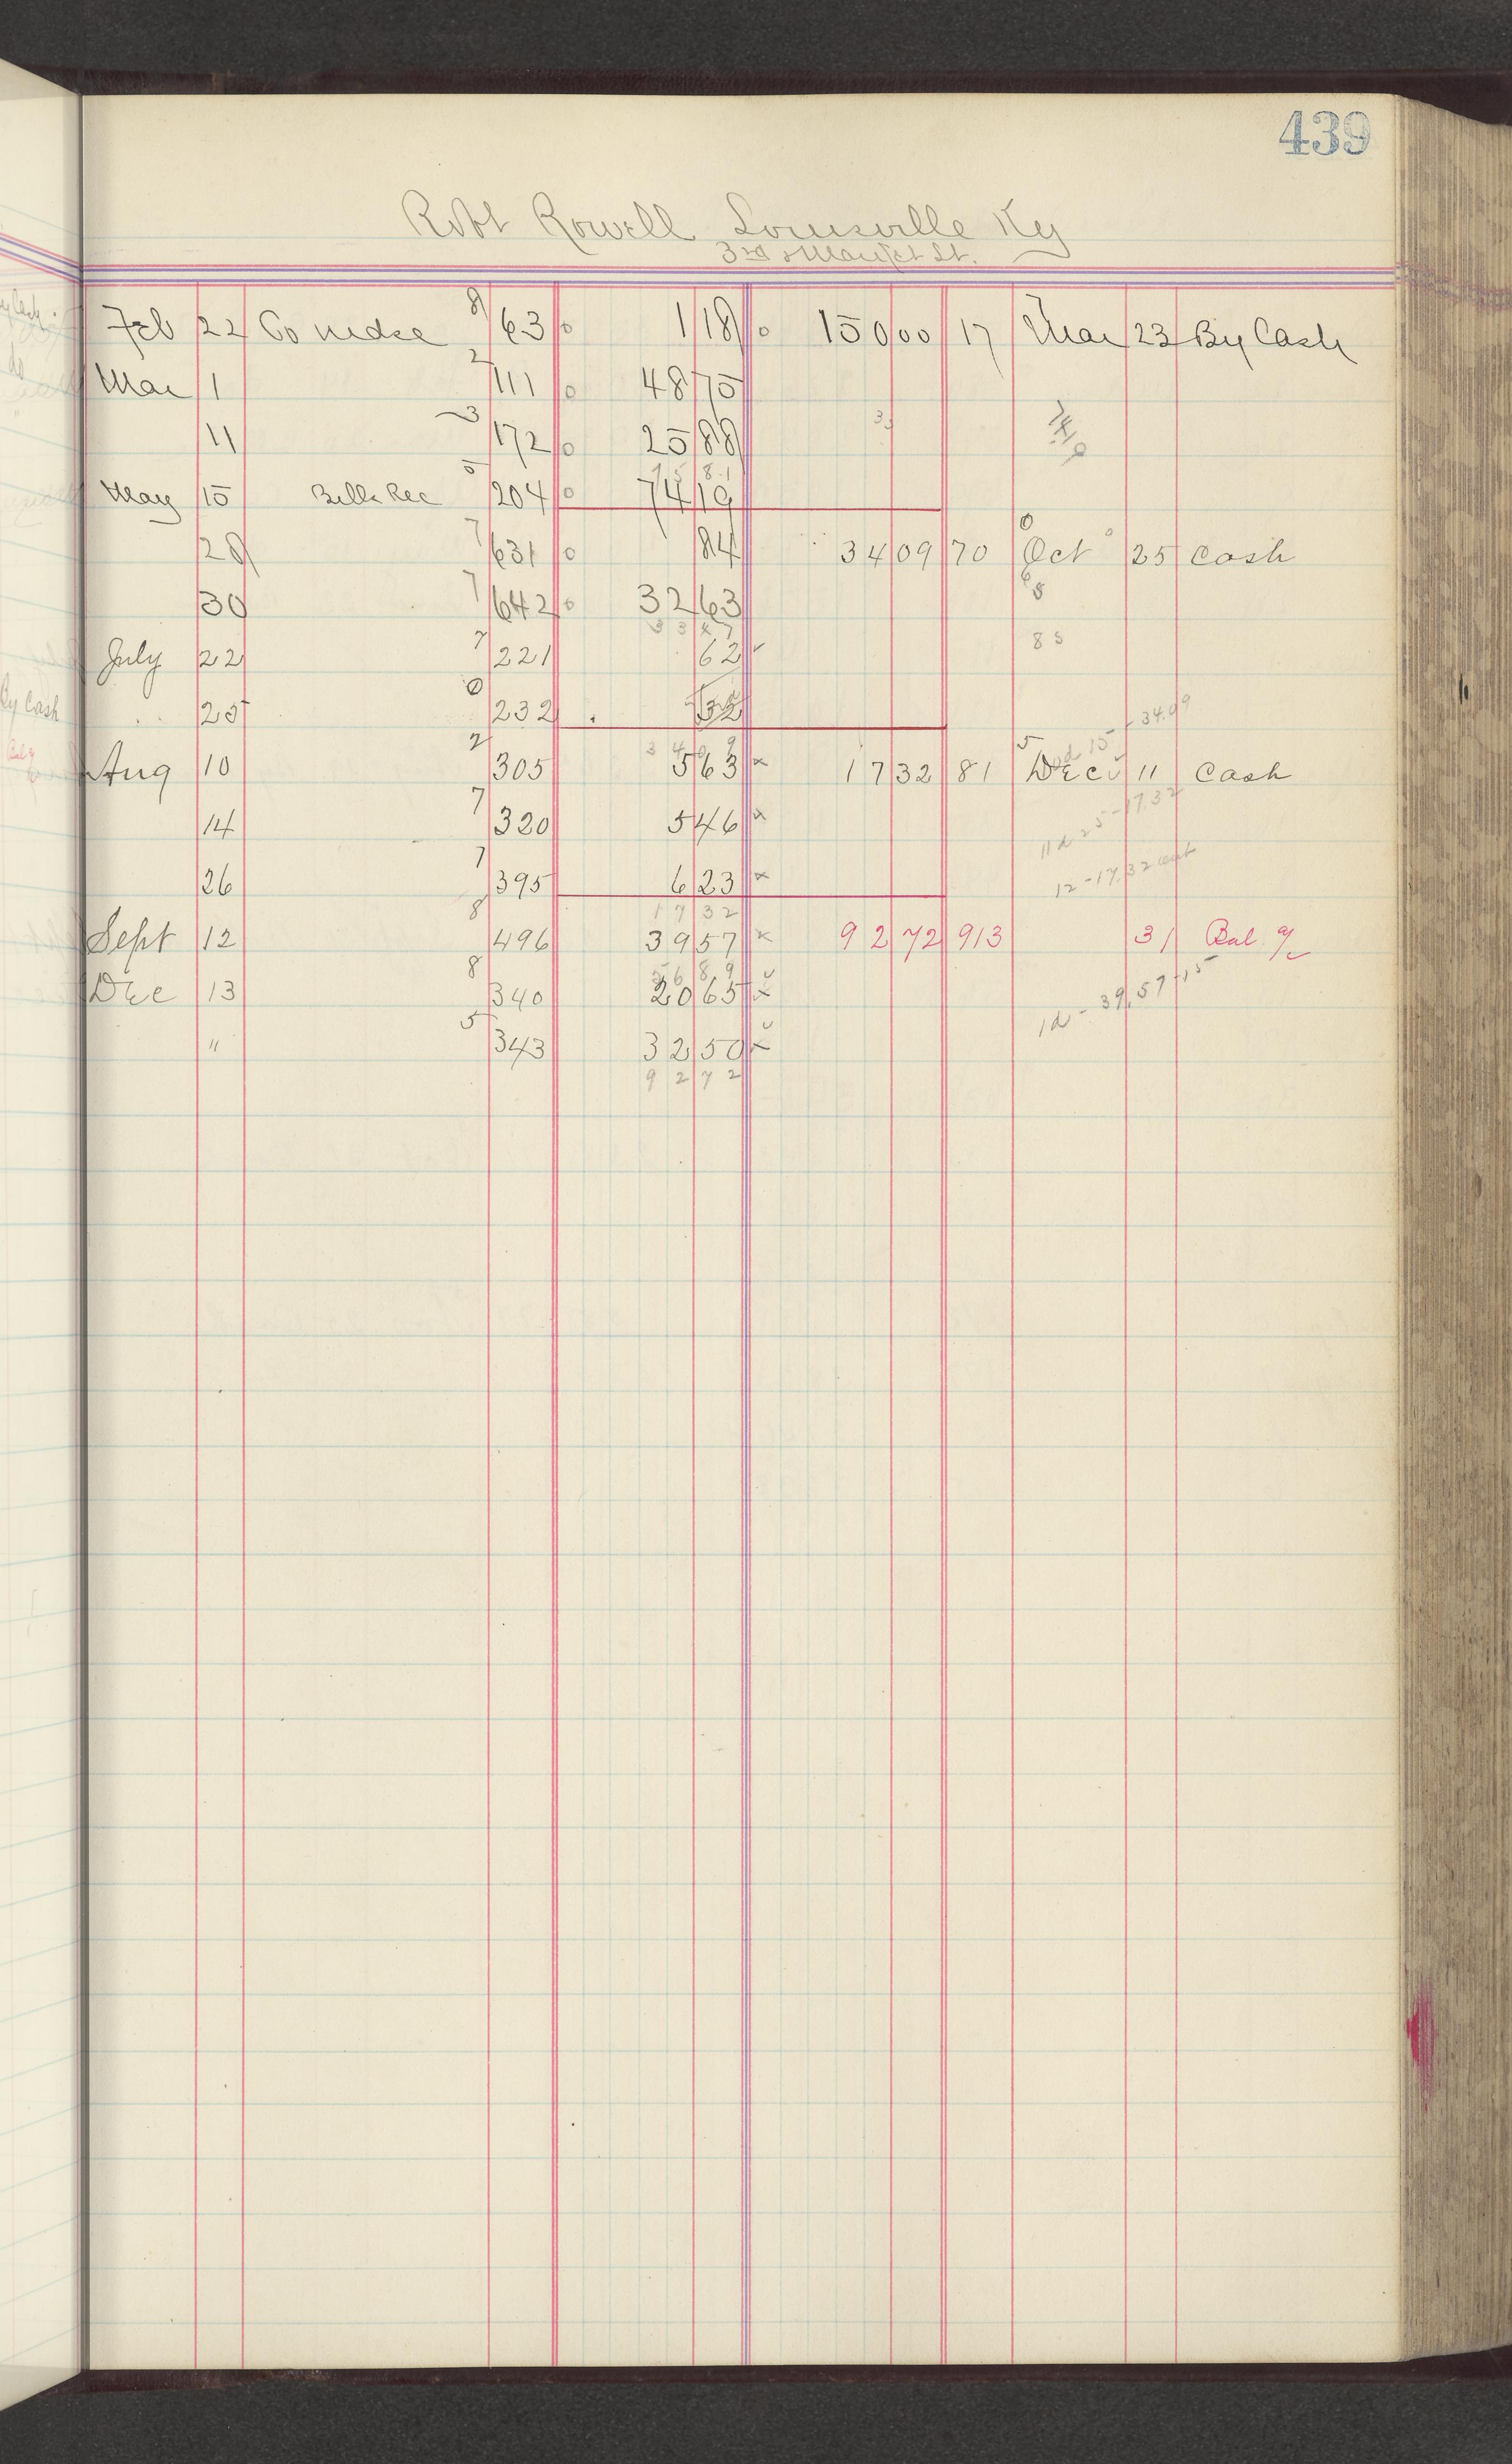 439
Robt Rowell Louisville Ky
3rd & Market St.
Feb 22 To mdse 8 63 0 1 18 0 150 00 17 Mar 23 By Cash
Mar 1 2 111 0 48 75
11 3 172 0 25 88
75 81
May 15 Bills Rec 5 204 0 74 19
28 7 631 0 84 34 09 70 Oct 25 Cash
30 7 642 0 32 63
33 47 8 5
July 22 7 221 62
25 232 . 32
34 09
Aug 10 2 305 5 63 x 17 32 81 Dec 11 Cash
14 7 320 5 46 x
26 7 395 6 23 x 12 - 17.32
17 32
Sept 12 8 496 39 57 x 92 72 913 31 Bal
Dec 13 8 340 20 65 x 1d - 39.57 - 15
" 5 343 32 50 x
92 72